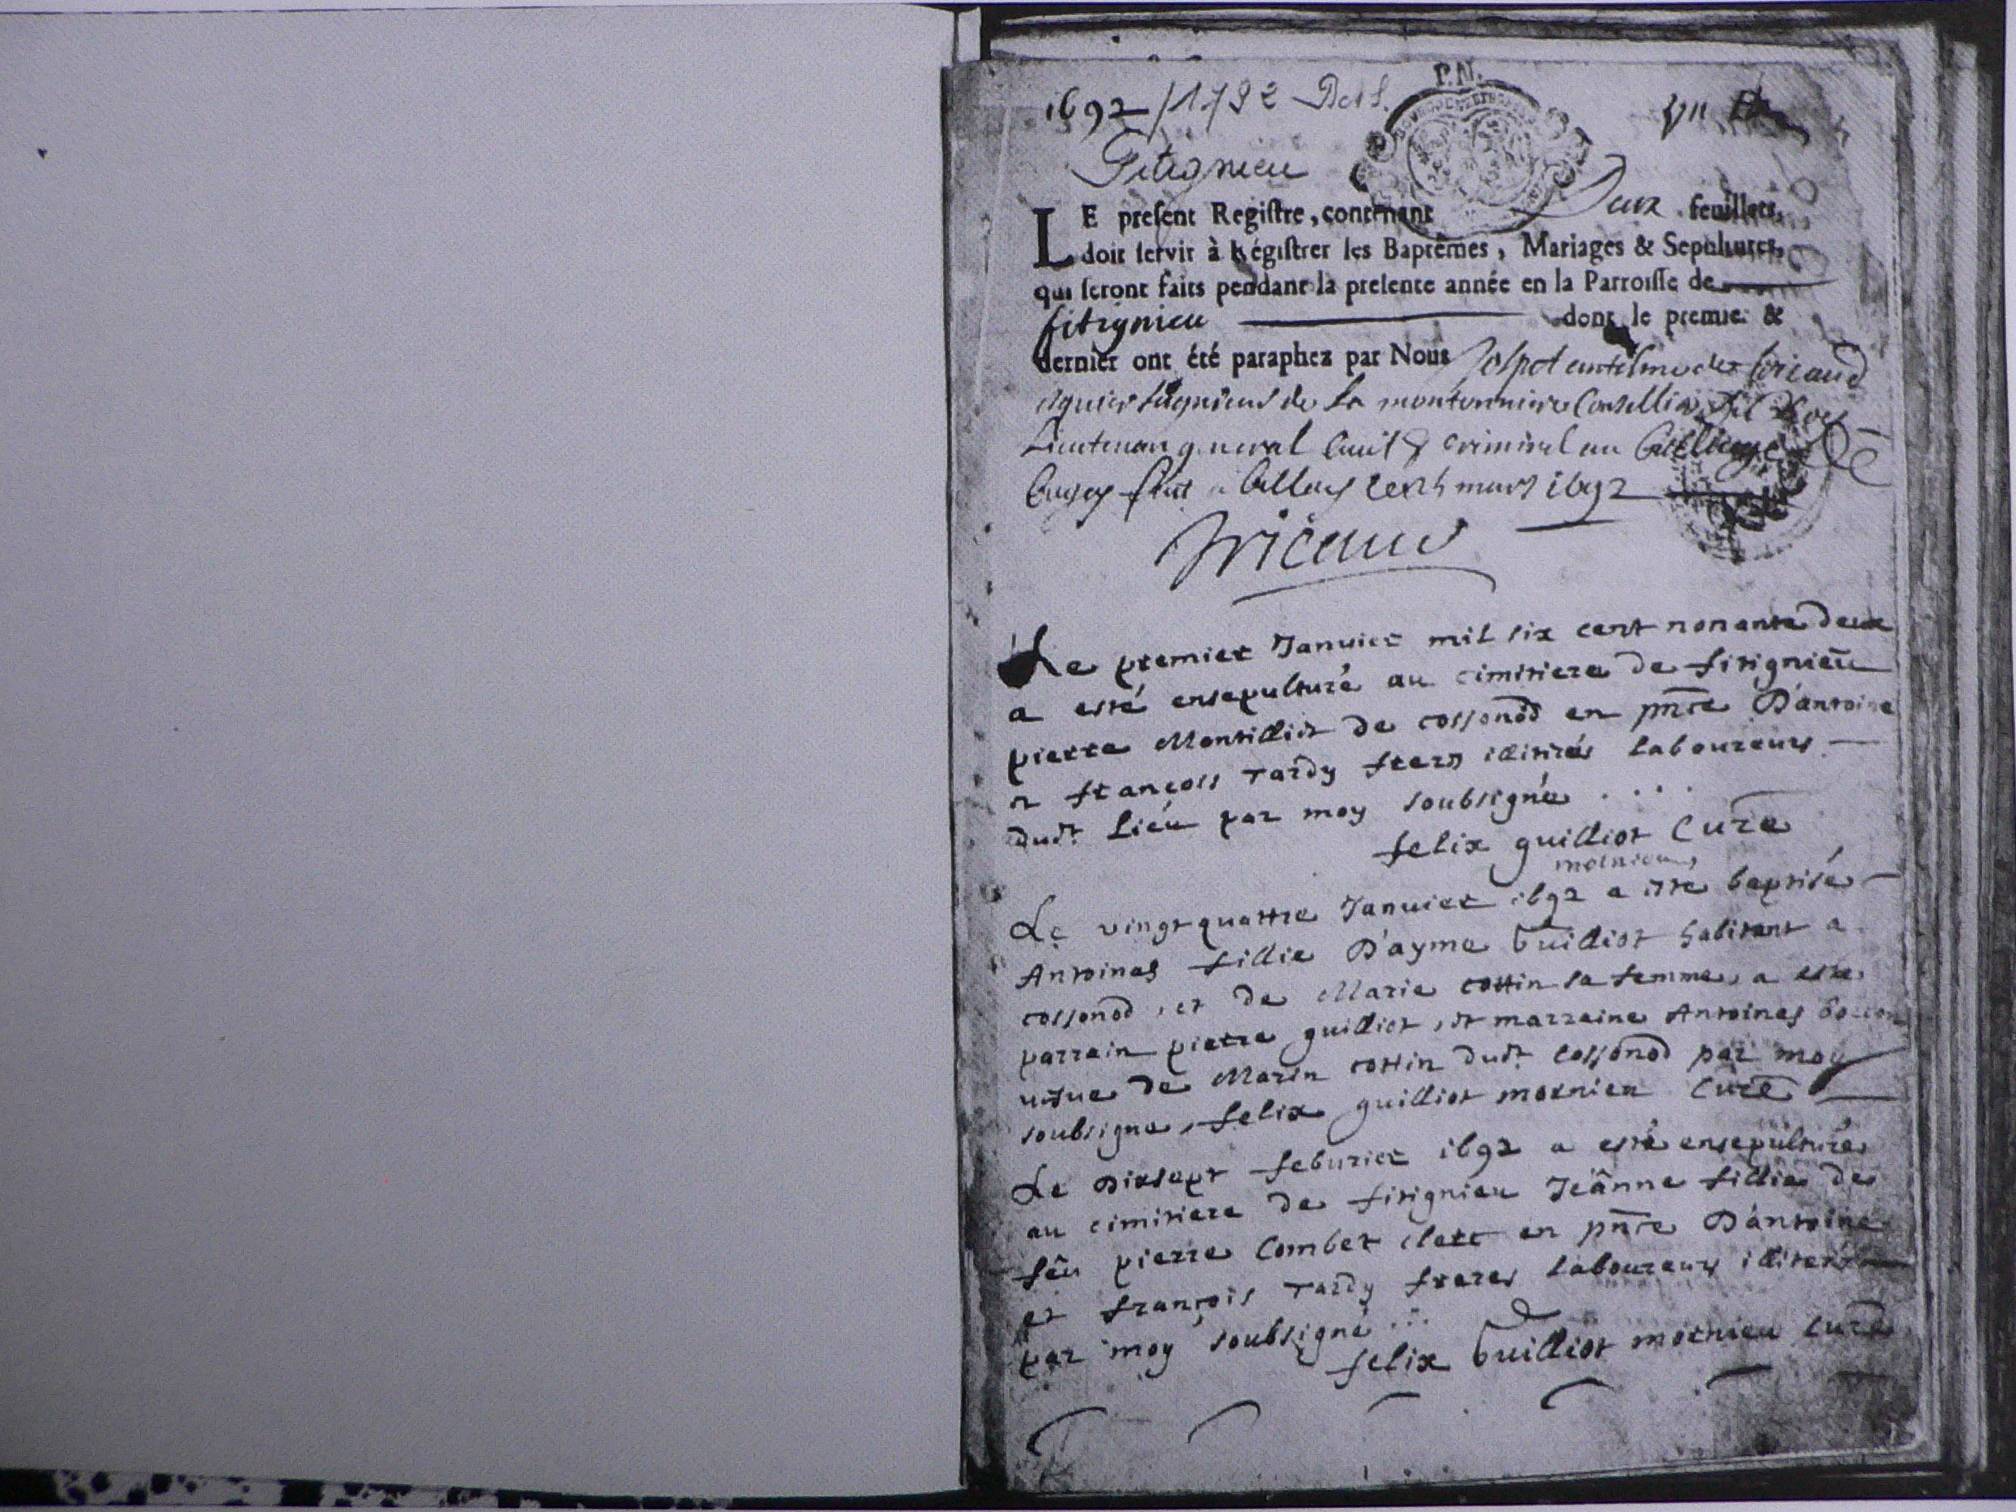 1692 / 1792
Fitignieu
LE present Registre, contenant Deux feuillets,
doit servir à Régistrer les Baptêmes, Mariages & Sepultures,
qui seront faits pendant la presente année en la Parroisse de
fitignieu dont le premier &
dernier ont été paraphez par Nous
de La
Lieutenant general Civil & criminel au Bailliage de
Bugey fait a Belley ce mars 1692
Le premier Janvier mil six cent nonante deux
a esté ensepulturé au cimitiere de fitignieu
pierre Montilliet de cossonod en pñce D'antoine
et françois Tardy freres illitirés Laboureurs
dudt. Lieu par moy soubsigné ....
felix guilliot Curé
mornieu
Le vingt quattre Janvier 1692 a esté baptisée
Antoinas fillie D'ayme Guilliot habitant a
cossonod, et de Marie cottin sa femme, a esté
parrain pierre guilliot, et marraine Antoinas
vefue de Marin cottin dudt. cossonod par moy
soubsigne, felix guilliot mornieu Curé
Le Dixsept feburier 1692 a esté ensepulturée
au cimitiere de fitignieu Jeanne fillie de
feu pierre Combet clerc en pñce D'antoine
et françois Tardy freres Laboureurs illiterés
par moy soubsigné ...
felix Guilliot mornieu curé